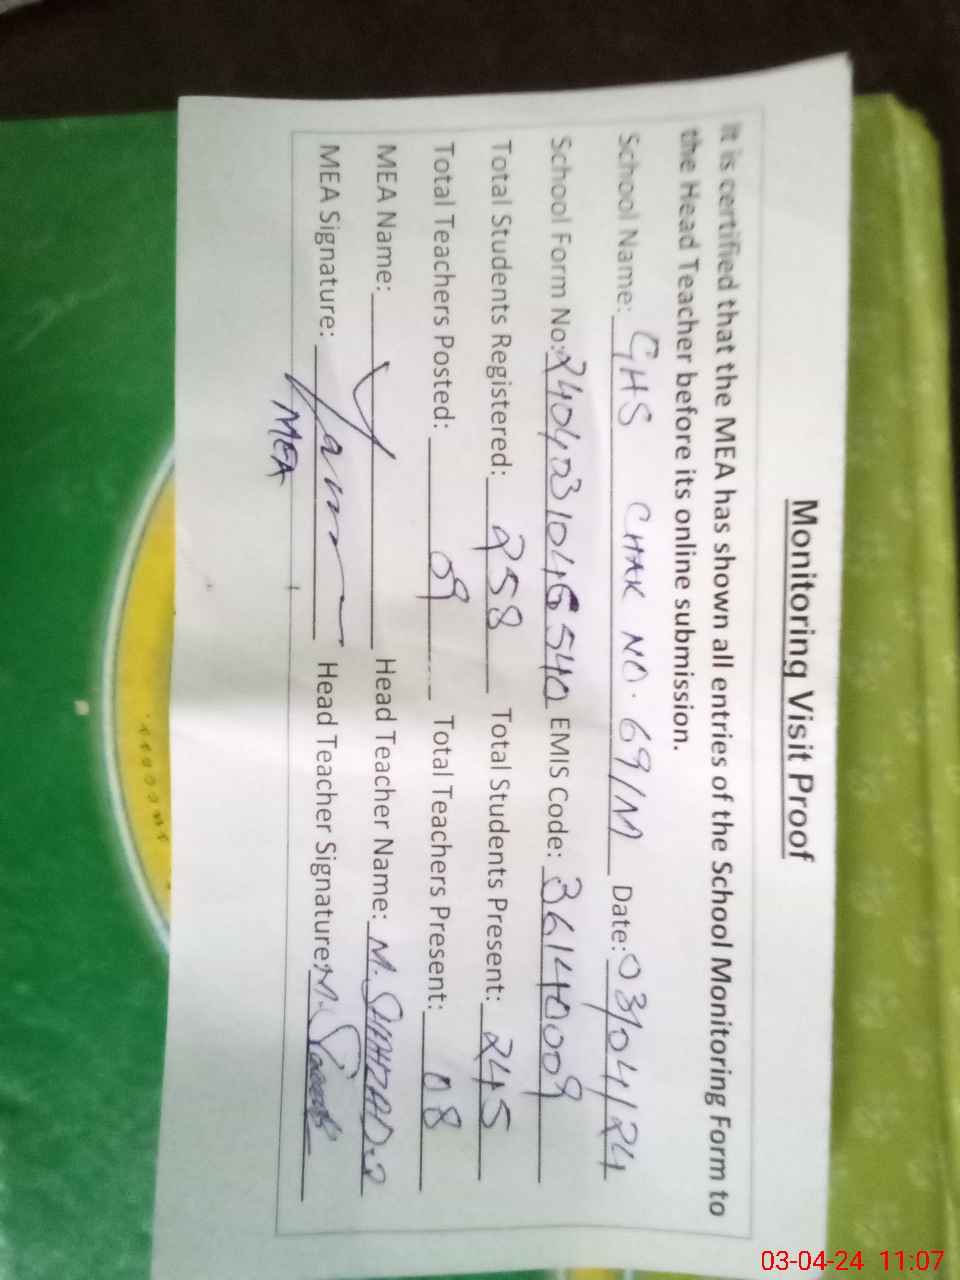 Monitoring Visit Proof
It is certified that the MEA has shown all entries of the School Monitoring Form to
the Head Teacher before its online submission.
School Name: GHS CHAK NO. 69/M Date: 03/04/24
School Form No: 2404031046540 EMIS Code: 36140009
Total Students Registered: 258 Total Students Present: 245
Total Teachers Posted: 09 Total Teachers Present: 08
MEA Name: Head Teacher Name: M. SHAHZAD
MEA Signature: Head Teacher Signature: M.
MEA
03-04-24 11:07